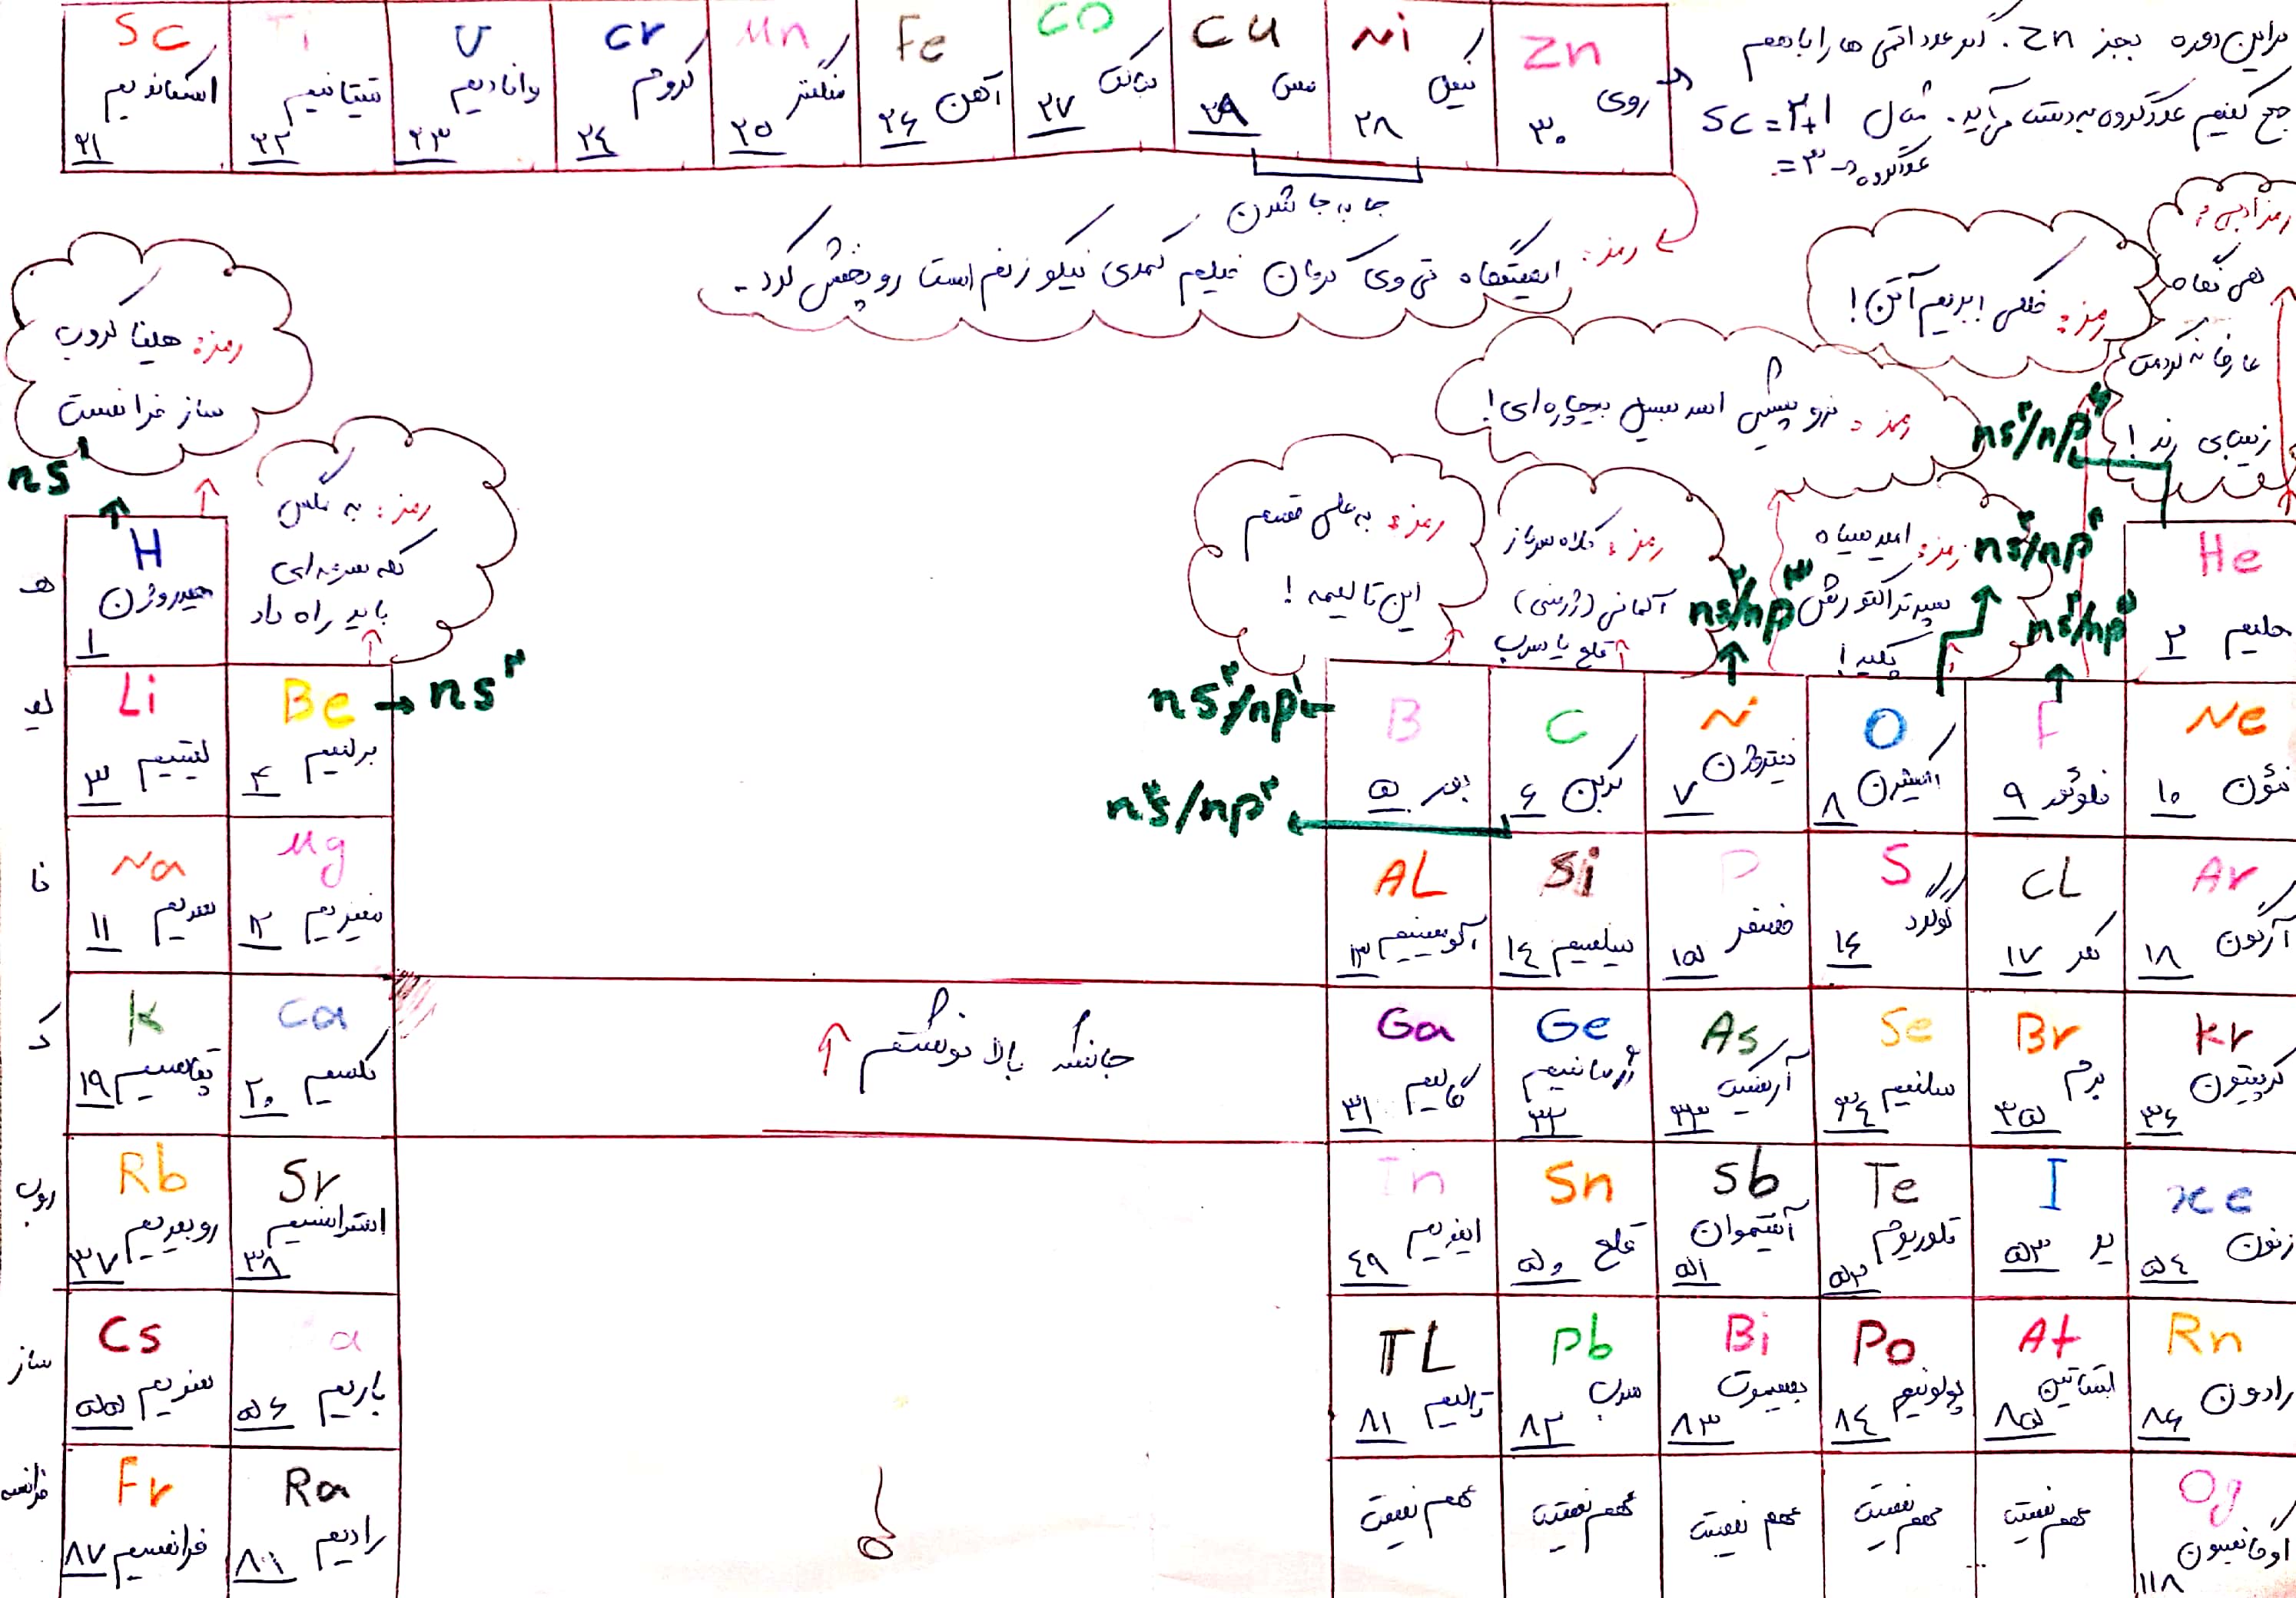 Sc Ti V Cr Mn Fe Co Cu Ni Zn
اسکاندیم تیتانیم وانادیم کروم منگنز آهن کبالت مس نیکل روی
۲۱ ۲۲ ۲۳ ۲۴ ۲۵ ۲۶ ۲۷ ۲۹ ۲۸ ۳۰
در این دوره بجز Zn. اگر عدد اتمی ها را باهم
جمع کنیم عدد گروه به دست می آید. مثال Sc = ۲+۱
= ۳ → عدد گروه
جا به جا شدن
رمز: ایستگاه تی وی کرمان فیلم کمدی نیکو زنم است رو پخش کرد.
رمز: هلینا کروب
ساز فرانست
ns¹
رمز: به مگس
که سرمه ای
باید راه داد
رمز: به علی قسم
این تا لیمه!
رمز: کلاه سرباز
آلمانی (ژرمنی)
قلع یا سرب
رمز: نرو پیش اسد سبیل بیچاره ای!
رمز: امید سیاه
سپر تراکتور رفش
بکنید!
رمز: فلکی ! بریم آتن!
رمز ادبی:
هی نگاه
عارفانه کردمت
زیبای رند!
ns²/np⁶
ns²/np³
ns²/np⁴
ns²/np⁵
هـ H هیدروژن ۱
He هلیم ۲
لیـ Li لیتیم ۳
Be برلیم ۴ → ns²
ns²/np¹ ← B بور ۵
C کربن ۶
N نیتروژن ۷
O اکسیژن ۸
F فلوئور ۹
Ne نئون ۱۰
ns²/np²
نا Na سدیم ۱۱
Mg منیزیم ۱۲
AL آلومینیم ۱۳
Si سیلسیم ۱۴
P فسفر ۱۵
S گوگرد ۱۶
CL کلر ۱۷
Ar آرگون ۱۸
کـ K پتاسیم ۱۹
Ca کلسیم ۲۰
جاش بالا نوشتم
Ga گالیم ۳۱
Ge ژرمانیم ۳۲
As آرسنیک ۳۳
Se سلنیم ۳۴
Br برم ۳۵
Kr کریپتون ۳۶
روب Rb روبیدیم ۳۷
Sr استرانسیم ۳۸
In ایندیم ۴۹
Sn قلع ۵۰
Sb آنتیموان ۵۱
Te تلوریوم ۵۲
I ید ۵۳
xe زنون ۵۴
ساز Cs سزیم ۵۵
a باریم ۵۶
TL تالیم ۸۱
Pb سرب ۸۲
Bi بیسموت ۸۳
Po پولونیم ۸۴
At استاتین ۸۵
Rn رادون ۸۶
فرانسه Fr فرانسیم ۸۷
Ra رادیم ۸۸
مهم نیست
مهم نیست
مهم نیست
مهم نیست
مهم نیست
Og اوگانسون ۱۱۸